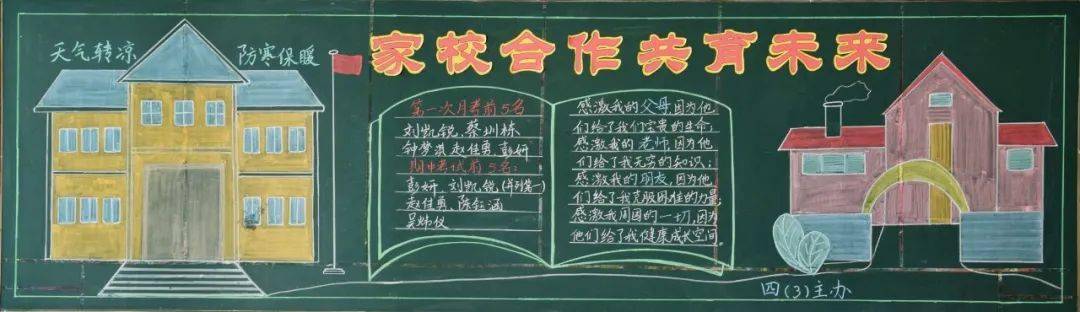 天气转凉
防寒保暖
家校合作共育未来
第一次月考前5名
刘凯锐、蔡圳栋
钟梦淇、赵佳勇、彭妍
期中考试前5名:
彭妍、刘凯锐(并列第一)
赵佳勇、陈钰涵
吴炜仪
感激我的父母因为他
们给了我们宝贵的生命;
感激我的老师,因为他
们给了我无穷的知识;
感激我的朋友,因为他
们给了我克服困难的力量;
感激我周围的一切,因为
他们给了我健康成长空间.
四(3)主办